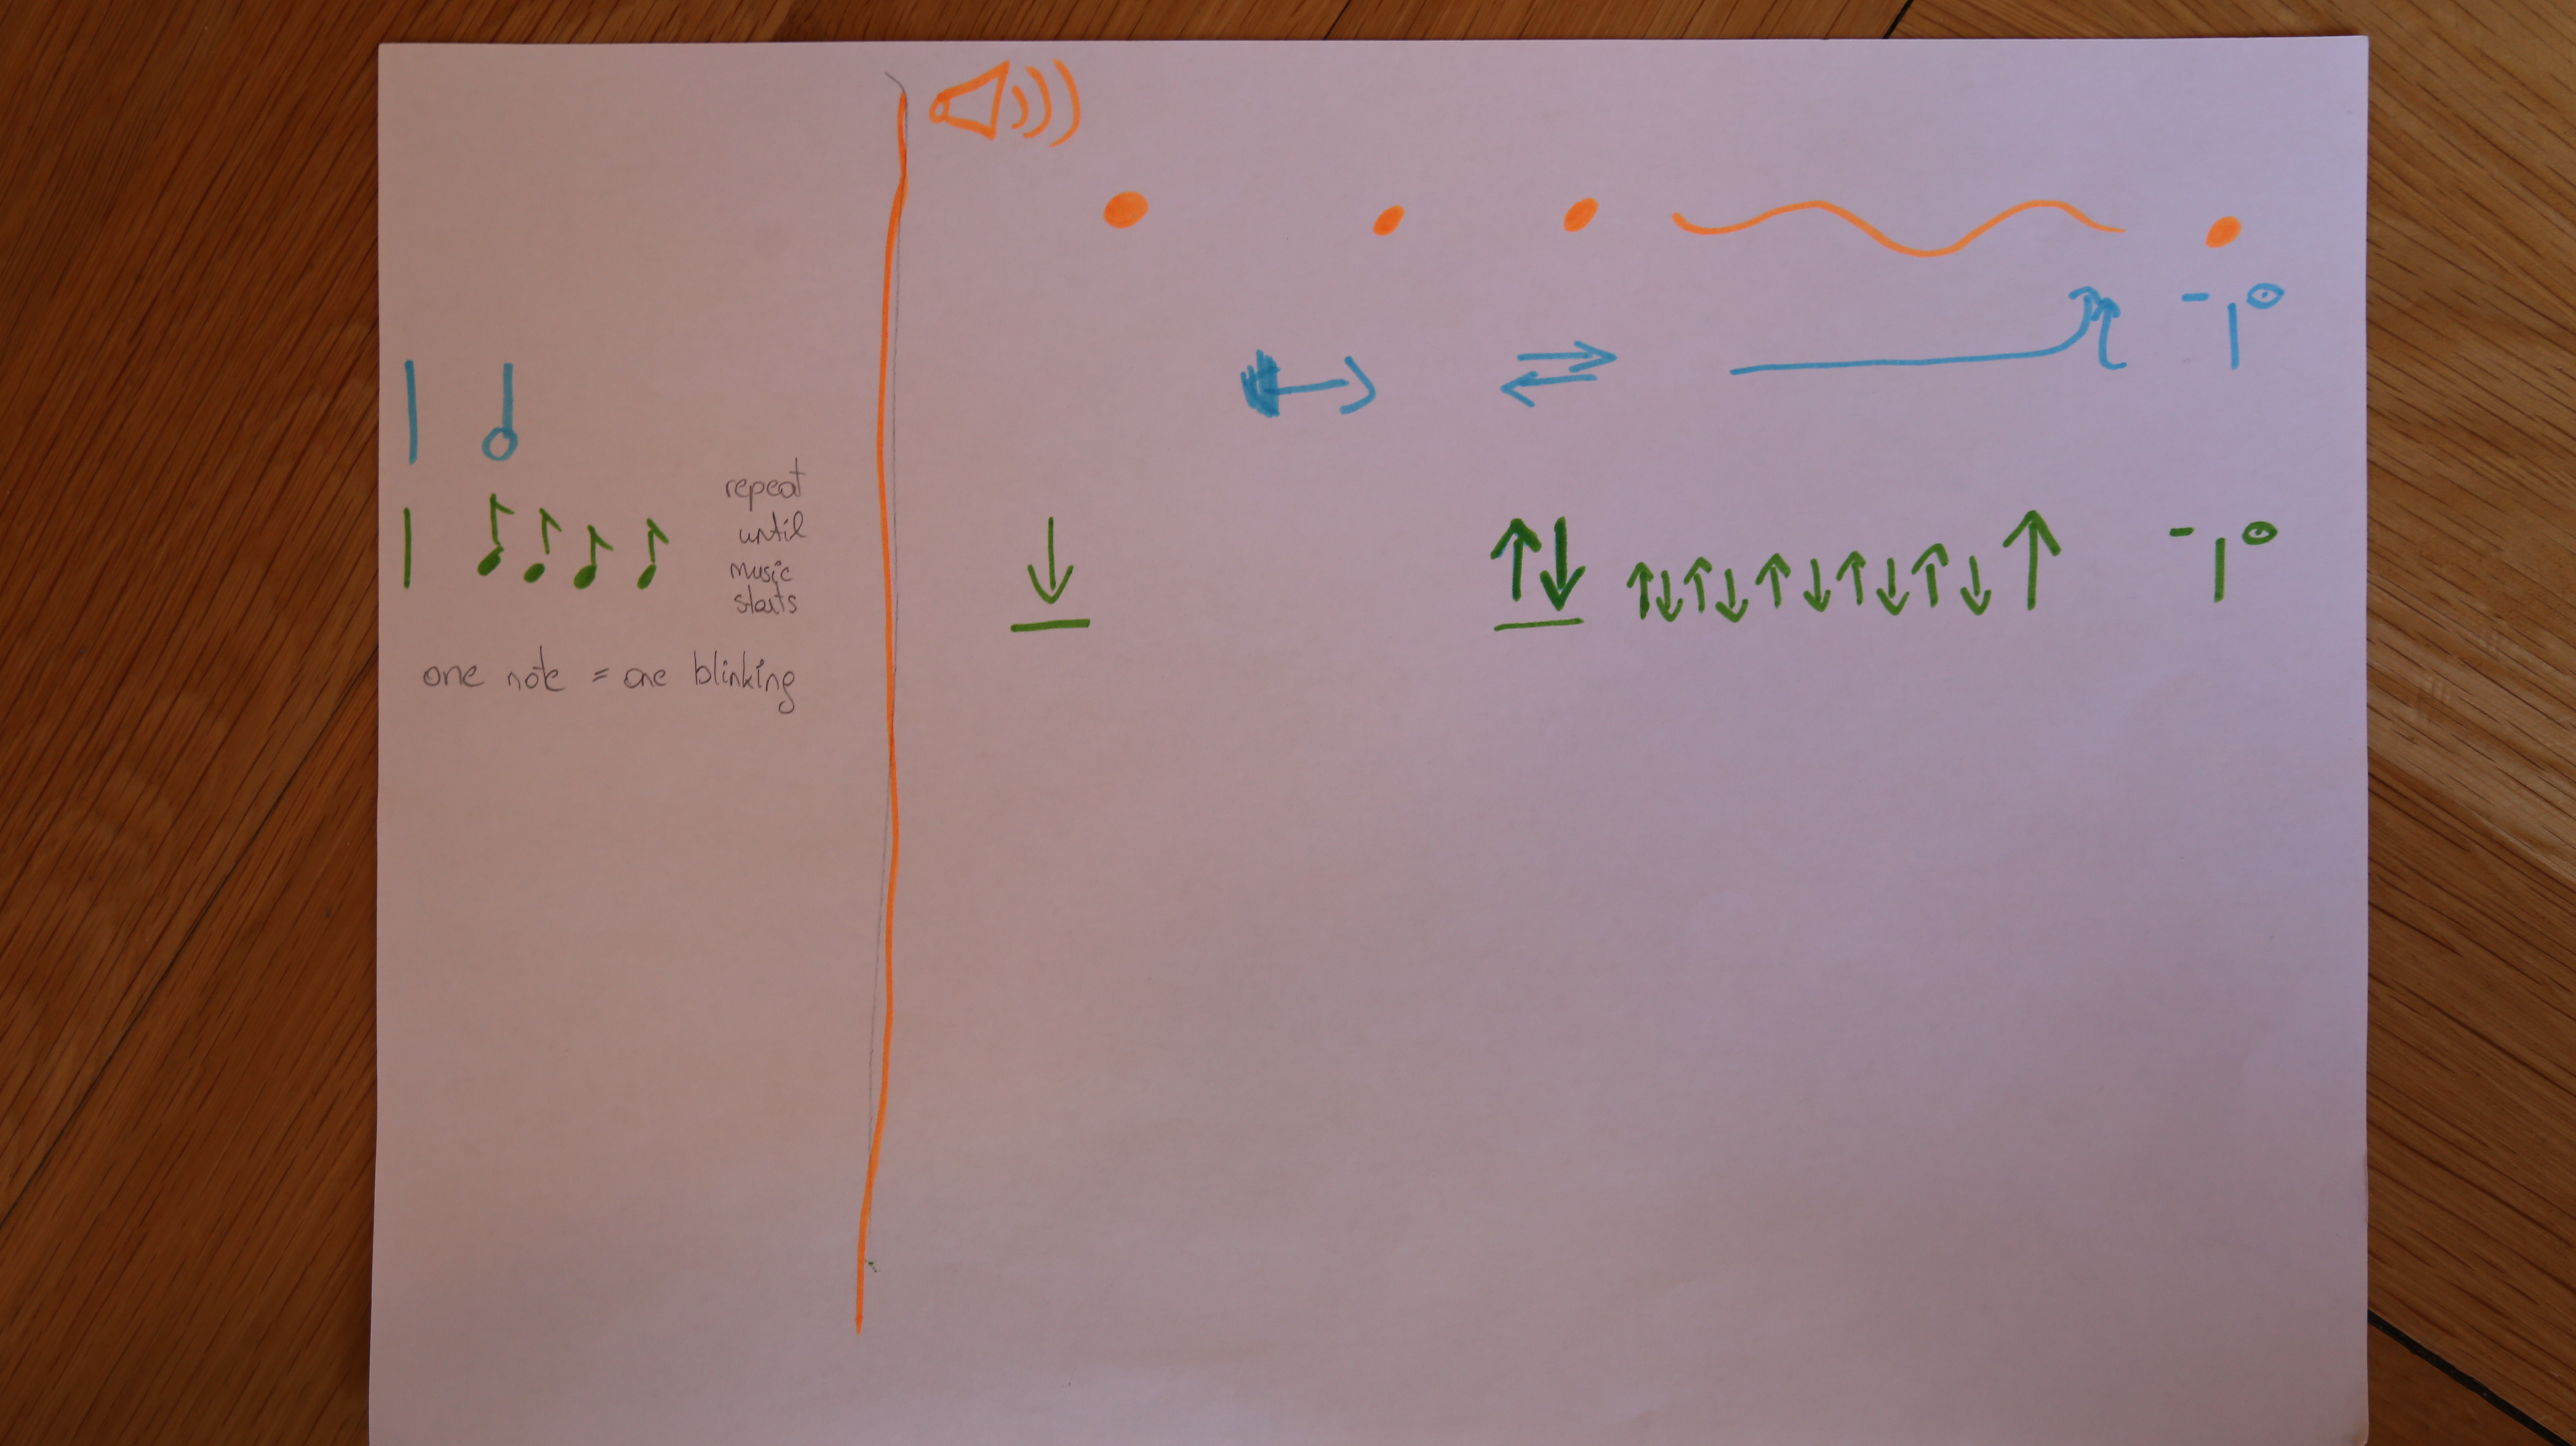 repeat
until
music
starts
one note = one blinking